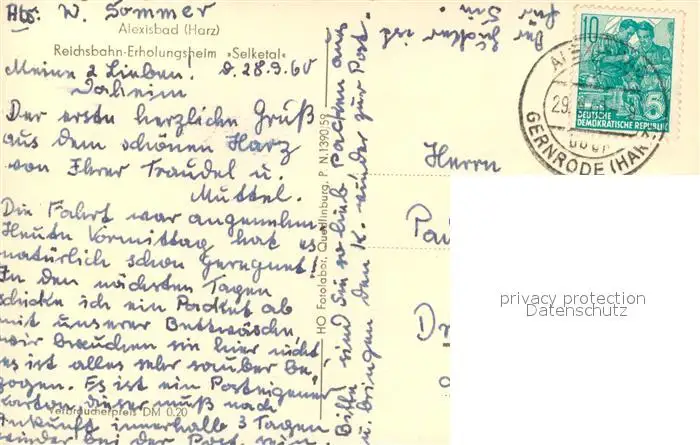 Abs. W. Sommer
Alexisbad (Harz)
Reichsbahn-Erholungsheim »Selketal«
Meine 2 Lieben! d. 28.9.60
Daheim
Der erste herzliche Gruß
aus dem schönen Harz
von Ihrer Traudel u.
Muttel.
Die Fahrt war angenehm
Heute Vormittag hat es
natürlich schon geregnet
In den nächsten Tagen
schicke ich ein Packet ab
mit unserer Bettwäsche
wir brauchen sie hier nicht
es ist alles sehr sauber be
zogen. Es ist ein Posteigener
Karton dieser muß nach
Ankunft innerhalb 3 Tagen
wieder bei der Post sein.
Verbraucherpreis DM 0.20
HO Fotolabor, Quedlinburg, P. N. 1390/59
Bitte sind Sie so lieb packen aus
u. bringen den K. wieder zur Post.
Der Zucker ist
für Sie
10
5
DEUTSCHE
DEMOKRATISCHE REPUBLIK
29.
GERNRODE (HARZ)
Herrn
privacy protection
Datenschutz